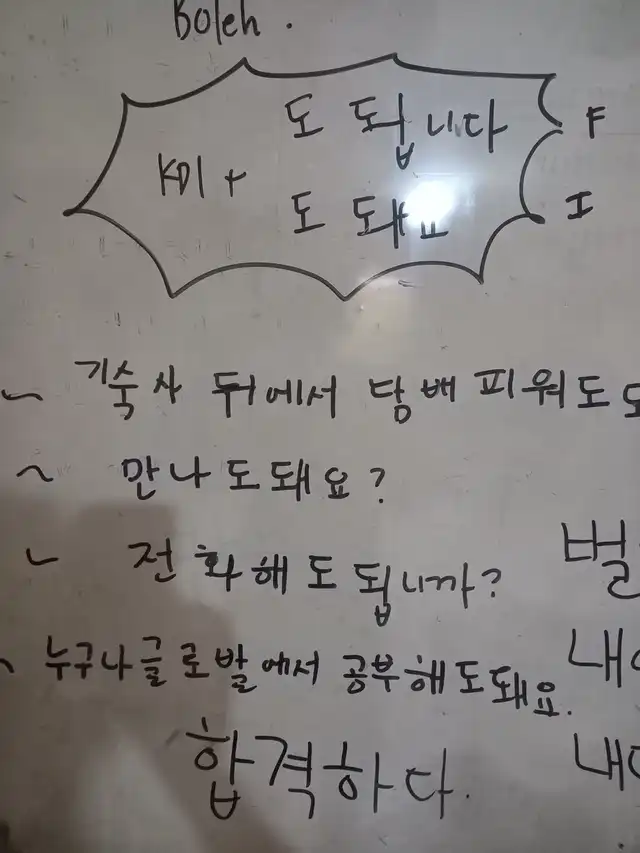 Boleh.
도 됩니다 F
KD1 +
도 돼요 I
~ 기숙사 뒤에서 담배 피워도
~ 만나도돼요?
~ 전화해도됩니까?
~ 누구나글로발에서 공부해도돼요.
합격하다.